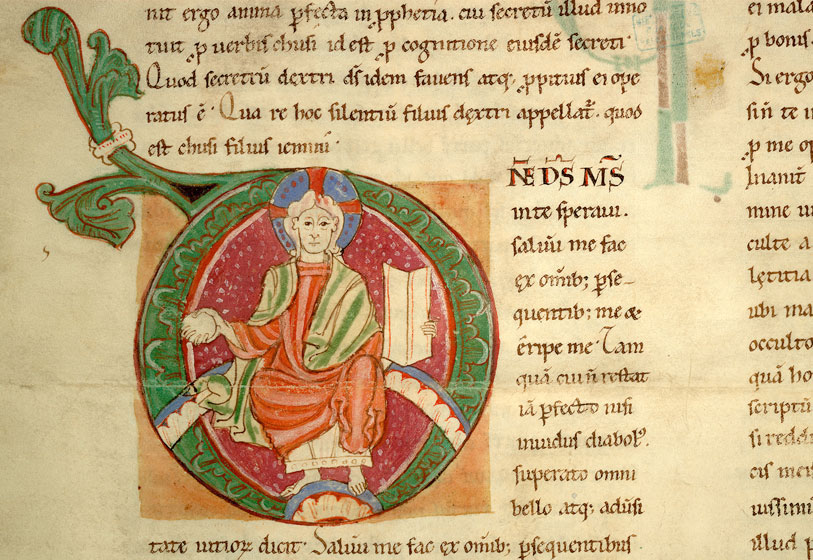 nit ergo anima ꝑfecta in ꝓphetia. cui secretū illud inno
tuit ꝓ uerbis chusi id est ꝓ cognitione eiusdē secreti.
Quod secretū dextri ds̄ idem fauens atq; ꝓpitius ei ope
ratus ē. Qua re hoc silentiū filius dextri appellat̄. quod
est chusi filius iemini.
D
N̄E D̄S M̄S
in te speraui.
saluū me fac
ex omib; ꝑse-
quentib; me &
eripe me. Tam
quā cui n̄ restat
iā ꝑfecto nisi
inuidus diabol᾽.
superato omni
bello atq; aduer̄si
tate uitioꝝ dicit. Saluū me fac ex omib; ꝑsequentibus
ei mala
ꝓ bonis.
Si ergo
sin̄ te
ꝓ me
Inanit
mine
culte a
lętitia
ubi ma
occulto
quā ho
scriptū
si reddi
cis mei
uissimi
illud